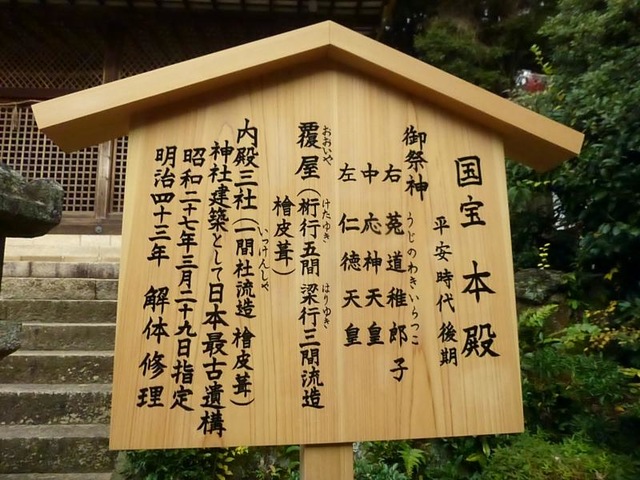 国宝 本殿
平安時代 後期
御祭神
うじのわきいらつこ
右 菟道稚郎子
中 応神天皇
左 仁徳天皇
おおいや けたゆき はりゆき
覆屋(桁行五間 梁行三間流造
檜皮葺)
いっけんしゃ
内殿三社(一間社流造 檜皮葺)
神社建築として日本最古遺構
昭和二十七年三月二十九日指定
明治四十三年 解体修理